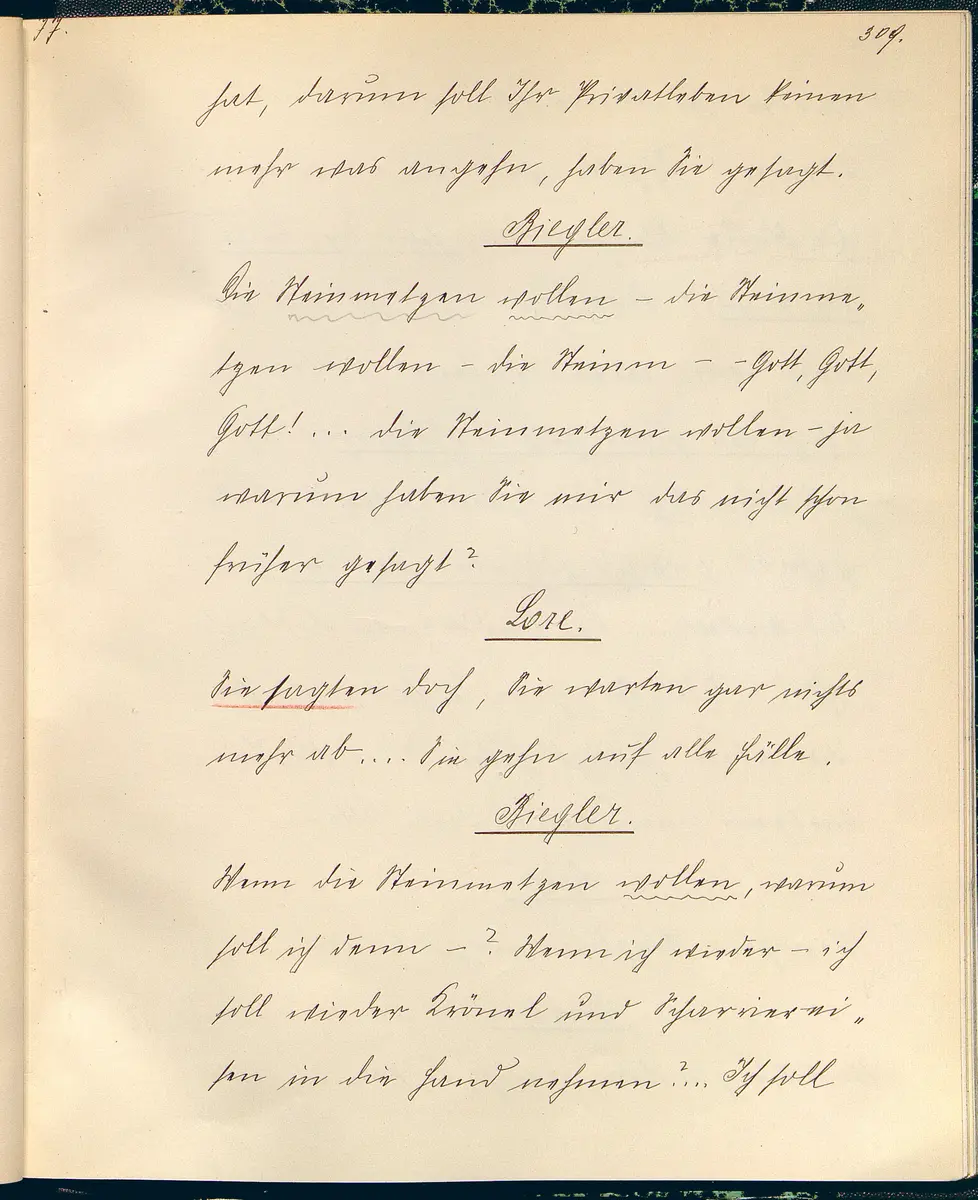 77. 309.
hat, darum soll Ihr Privatleben keinen
mehr was angehn, haben Sie gesagt.
Biegler.
Die Steinmetzen wollen – die Steinme„
tzen wollen – die Steinm – – Gott, Gott,
Gott! ... die Steinmetzen wollen – ja
warum haben Sie mir das nicht schon
früher gesagt?
Lore.
Sie sagten doch, Sie warten gar nichts
mehr ab.... Sie gehn auf alle Fälle.
Biegler.
Wenn die Steinmetzen wollen, warum
soll ich denn – ? Wenn ich wieder – ich
soll wieder Krönel und Scharrierei„
sen in die Hand nehmen?... Ich soll